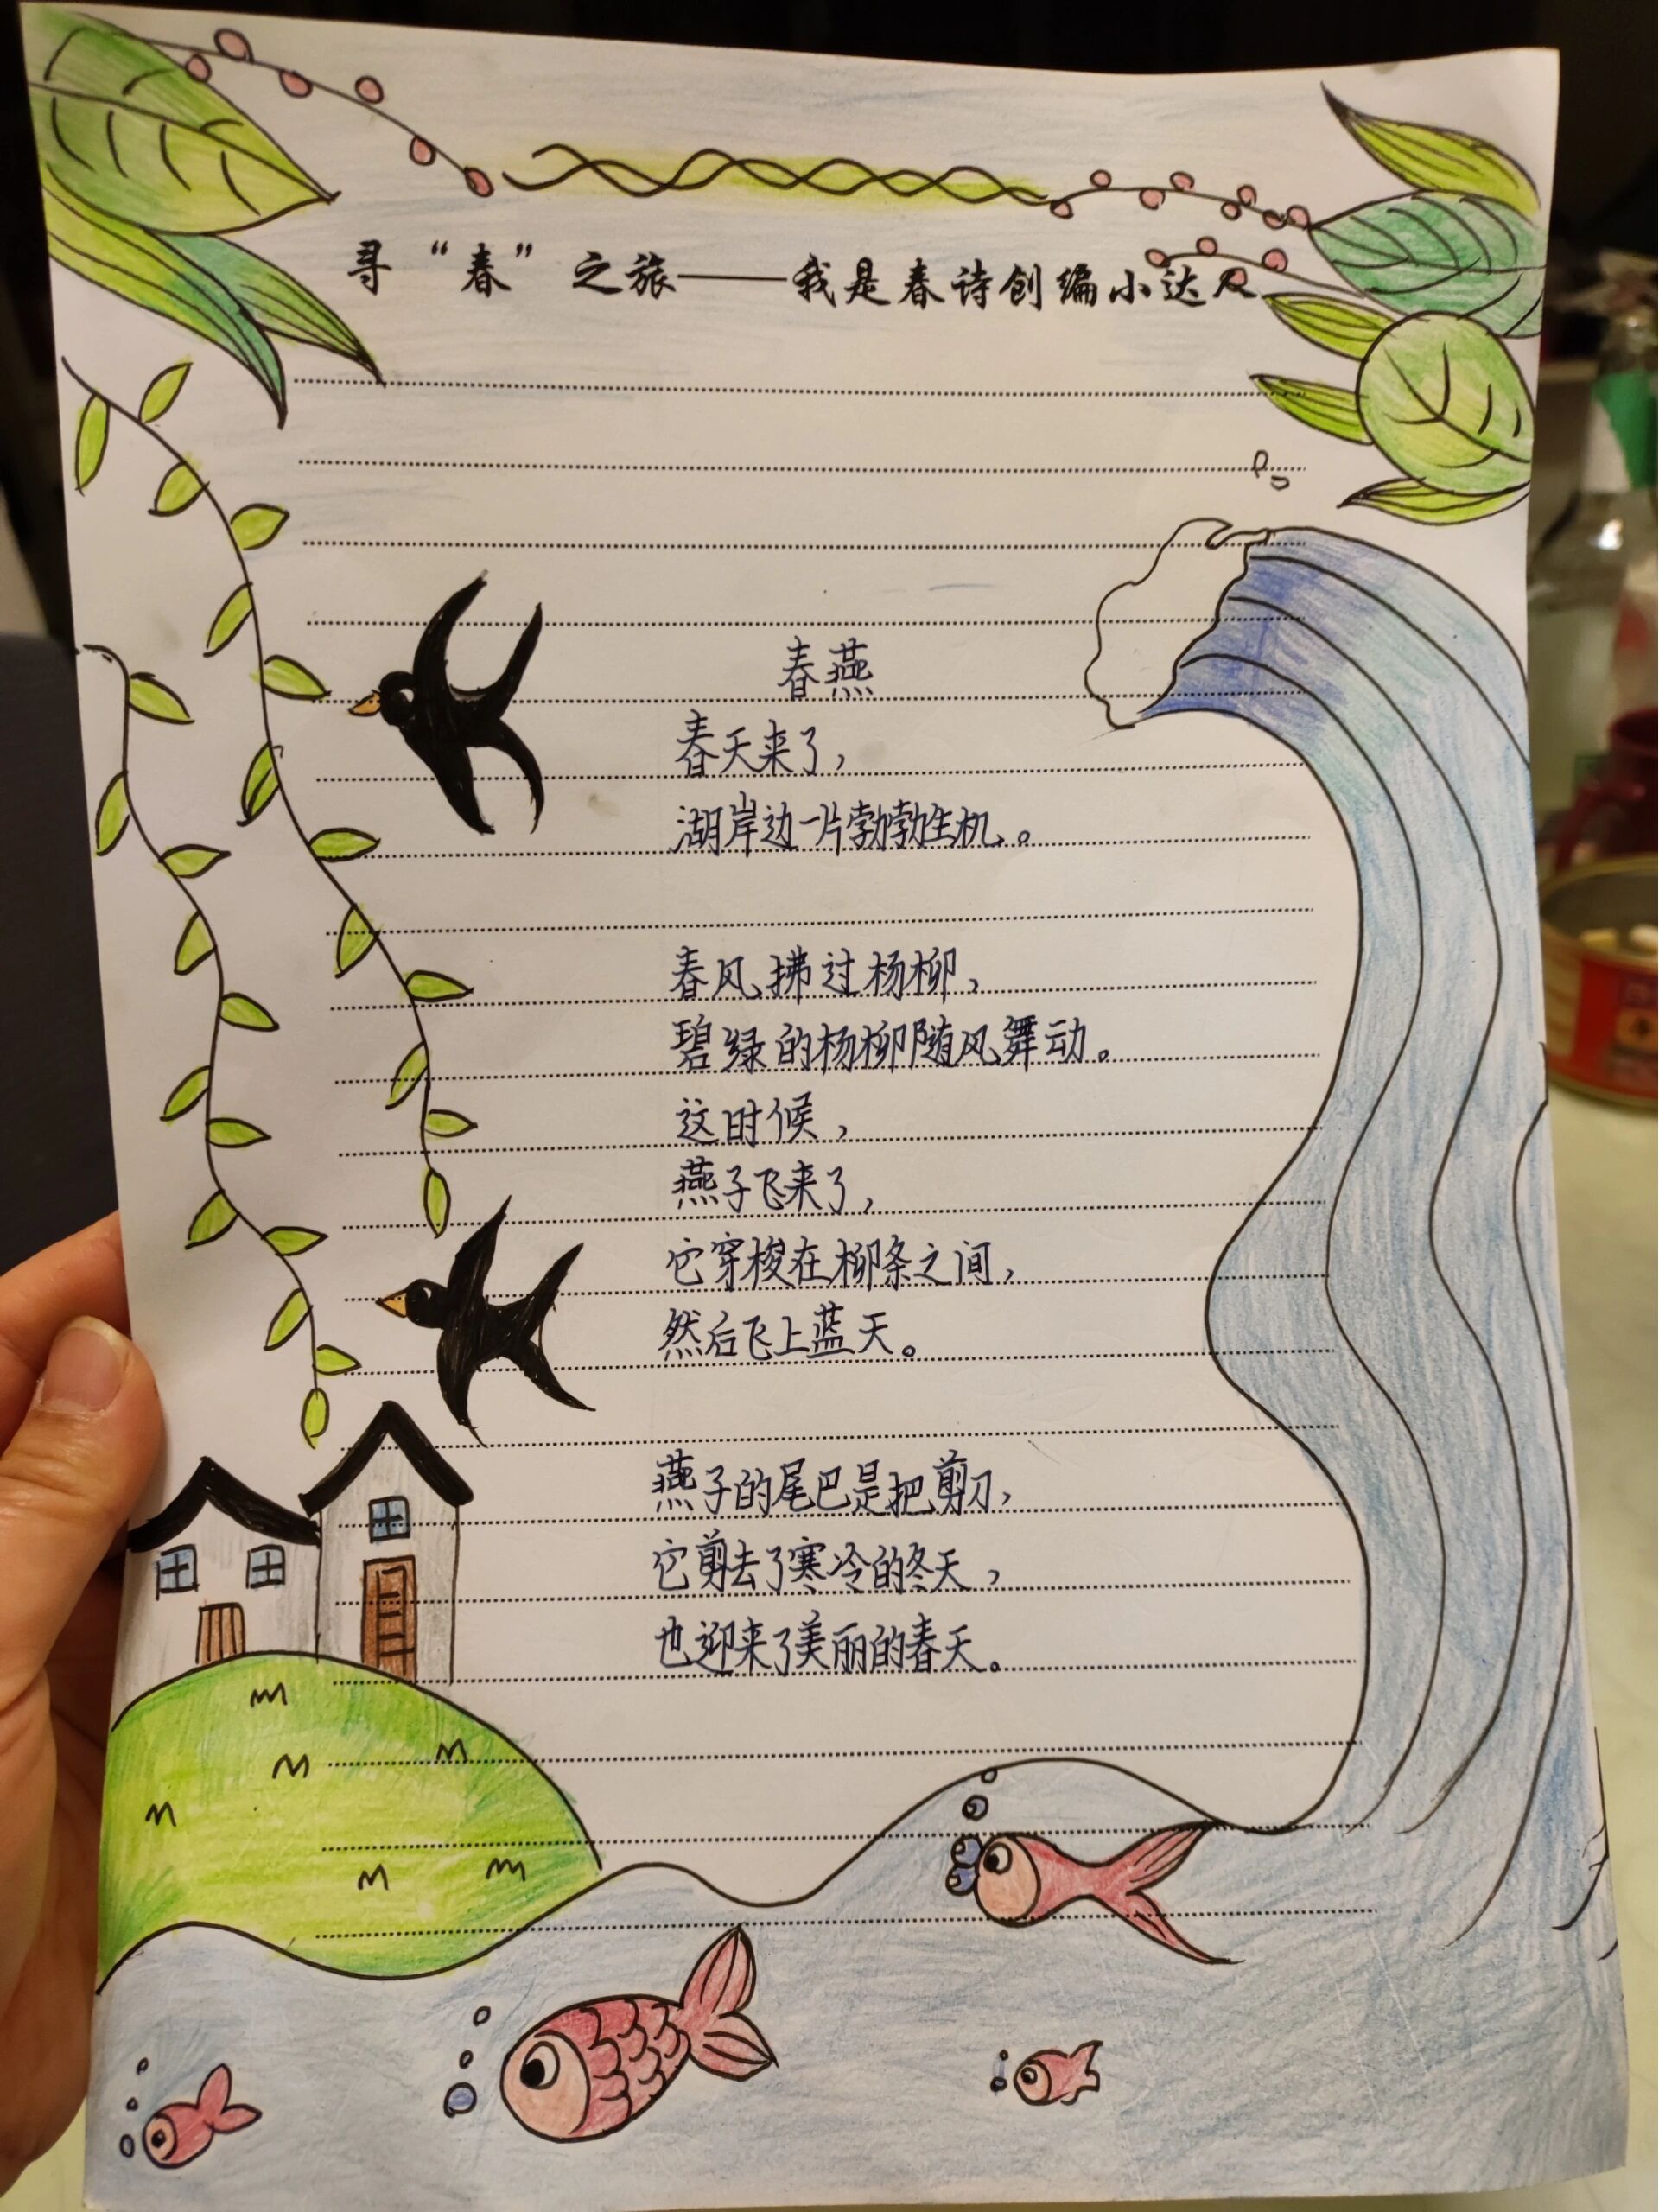 寻“春”之旅——我是春诗创编小达人
春燕
春天来了，
湖岸边一片勃勃生机。
春风拂过杨柳，
碧绿的杨柳随风舞动。
这时候，
燕子飞来了，
它穿梭在柳条之间，
然后飞上蓝天。
燕子的尾巴是把剪刀，
它剪去了寒冷的冬天，
也迎来了美丽的春天。